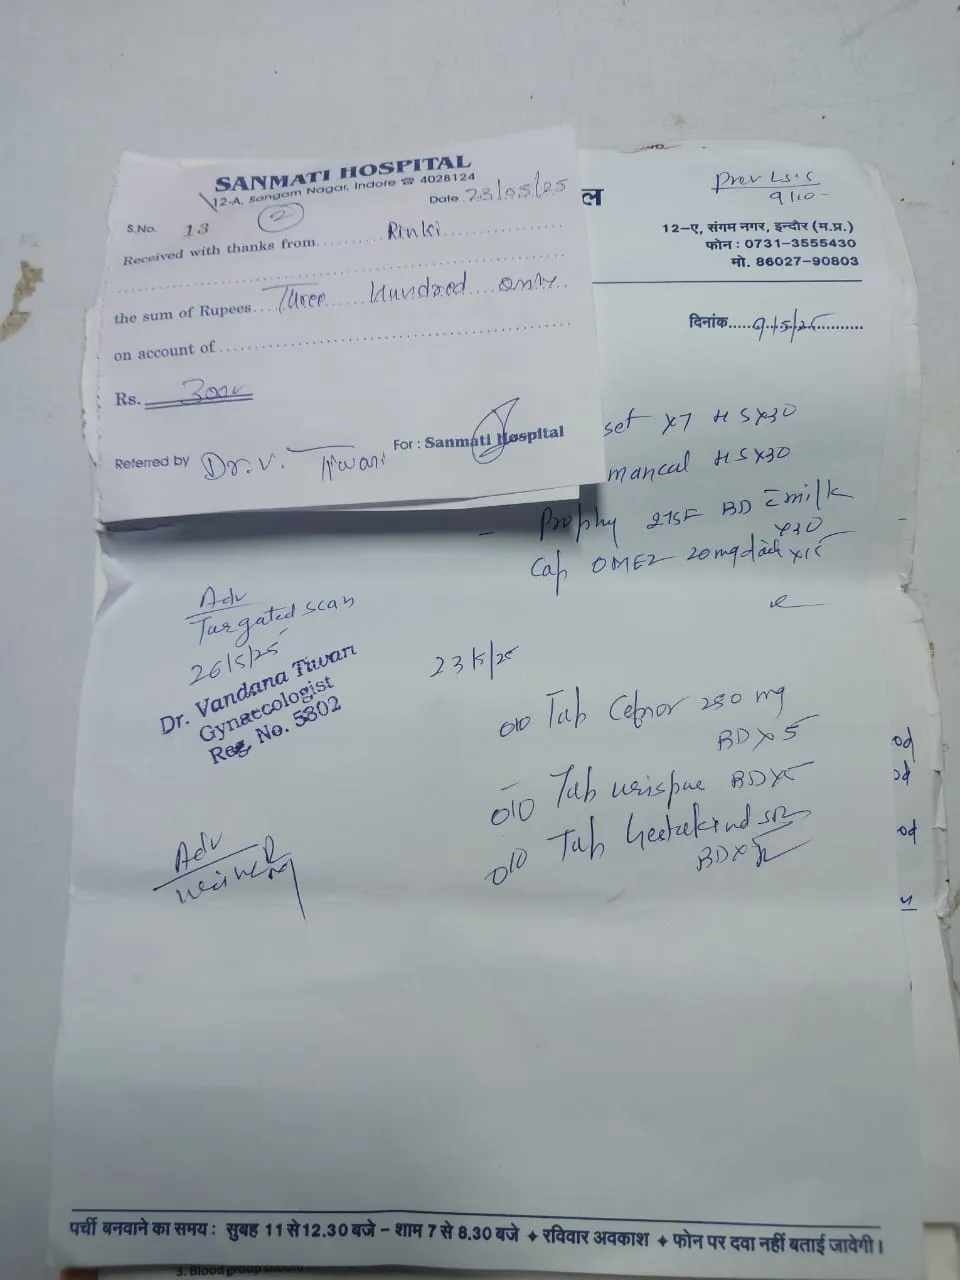 SANMATI HOSPITAL
12-A, Sangam Nagar, Indore ☎ 4028124
2
Date 23/05/25
S.No. 13
Received with thanks from Rinki
the sum of Rupees Three Hundred only
on account of
Rs. 300
Referred by Dr. V. Tiwari
For : Sanmati Hospital
ल
Prev LSCS
9/10
12-ए, संगम नगर, इन्दौर (म.प्र.)
फोन : 0731-3555430
मो. 86027-90803
दिनांक 9/5/25
set x7 HSx30
mancal HSx30
BD milk
x30
Cap OMEZ 20mg x15
Adv
Targated scan
26/5/25
Dr. Vandana Tiwari
Gynaecologist
Reg. No. 5802
23/5/25
Tab 250 mg
BD x 5
Tab BD x 5
Tab SR
BD x
Adv
od
od
od
पर्ची बनवाने का समय : सुबह 11 से 12.30 बजे - शाम 7 से 8.30 बजे ✦ रविवार अवकाश ✦ फोन पर दवा नहीं बताई जावेगी।
3. Blood group